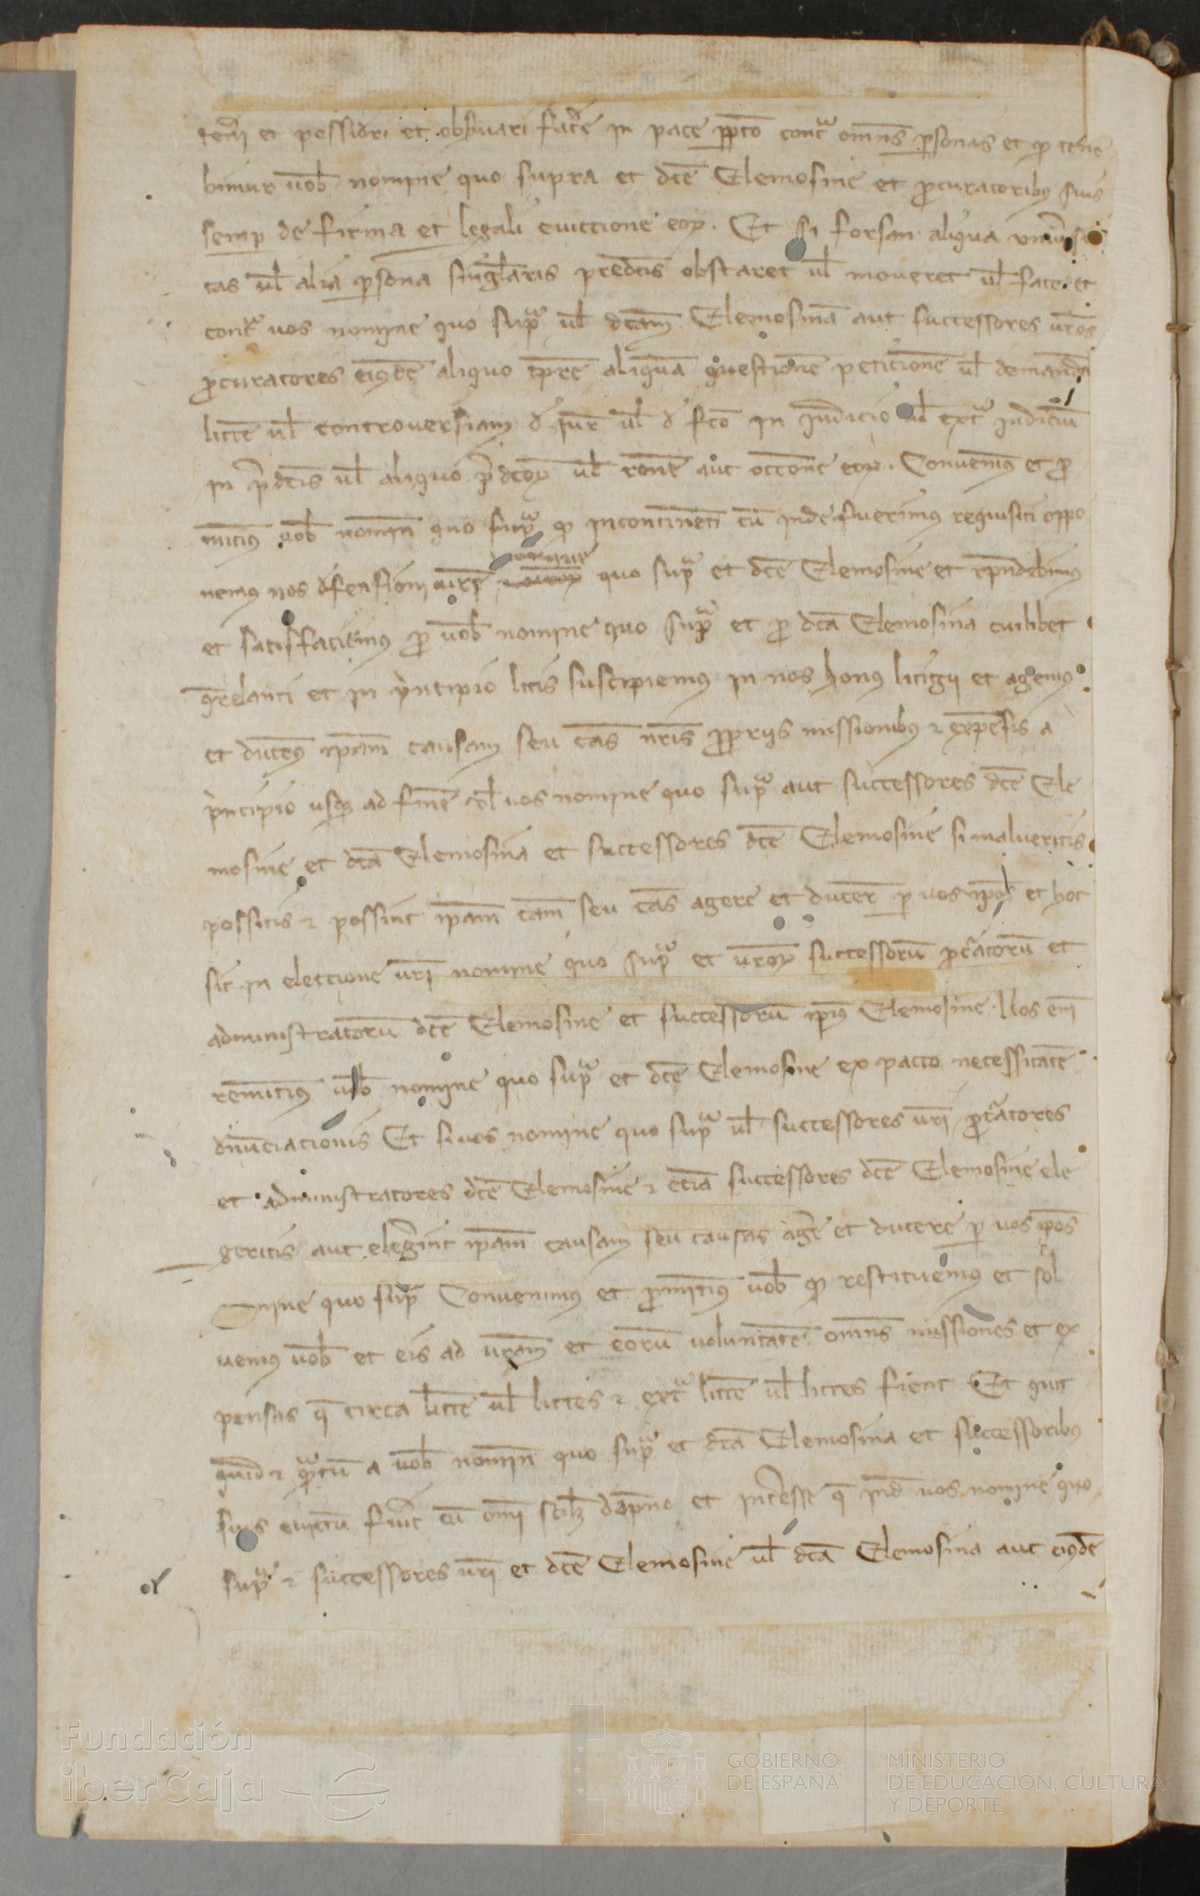 teneri et possideri et observari facere in pace perpetuo contra omnes personas et quod tene
bimur vobis nomine quo supra et dicte Elemosine et procuratoribus suis
semper de firma et legali eviccione eorum. Et si forsan aliqua universi
tas vel alia persona singularis predictis obstaret vel moveret vel faceret
contra vos nomine quo supra vel dictam Elemosinam aut successores vestros
procuratores eiusdem aliquo tempore aliquam questionem peticionem vel demandam
litem vel controversiam de iure vel de facto in iudicio vel extra iudicium
in predictis vel aliquo predictorum vel racione aut occasione eorum. Convenimus et pro
mitimus vobis nomine quo supra quod incontinenti cum inde fuerimus requisiti oppo
nemus nos defensioni vestre nomine quo supra et dicte Elemosine et respondebimus
et satisfaciemus pro vobis nomine quo supra et pro dicta Elemosina cuilibet
querelanti et in principio litis suscipiemus in nos honus litigii et agemus
et ducemus ipsam causam seu causas nostris propriis missionibus et expensis a
principio usque ad finem vel vos nomine quo supra aut successores dicte Ele
mosine et dicta Elemosina et successores dicte Elemosine si malueritis
possitis et possint ipsam causam seu causas agere et ducere per vos ipsos et hoc
sit in eleccione vestri nomine quo supra et vestrorum successorum procuratorum et
administratorum dicte Elemosine et successorum ipsius Elemosine. Nos enim
remitimus vobis nomine quo supra et dicte Elemosine ex pacto necessitatem
denunciacionis Et si vos nomine quo supra vel successores vestri procuratores
et administratores dicte Elemosine et etiam successores dicte Elemosine ele
geritis aut elegerint ipsam causam seu causas agere et ducere per vos ipsos
mine quo supra Convenimus et promitimus vobis quod restituemus et sol
vemus vobis et eis ad vestram et eorum voluntatem omnes missiones et ex
pensas que circa litem vel lites et extra litem vel lites fient Et quit
quid et quantum a vobis nomine quo supra et dicta Elemosina et successoribus
suis evictum fuerit cum omni scilicet dampno et interesse que inde vos nomine quo
supra et successores vestri et dicte Elemosine vel dicta Elemosina aut eiusdem
Fundación
iberCaja
GOBIERNO
DE ESPAÑA
MINISTERIO
DE EDUCACIÓN, CULTURA
Y DEPORTE